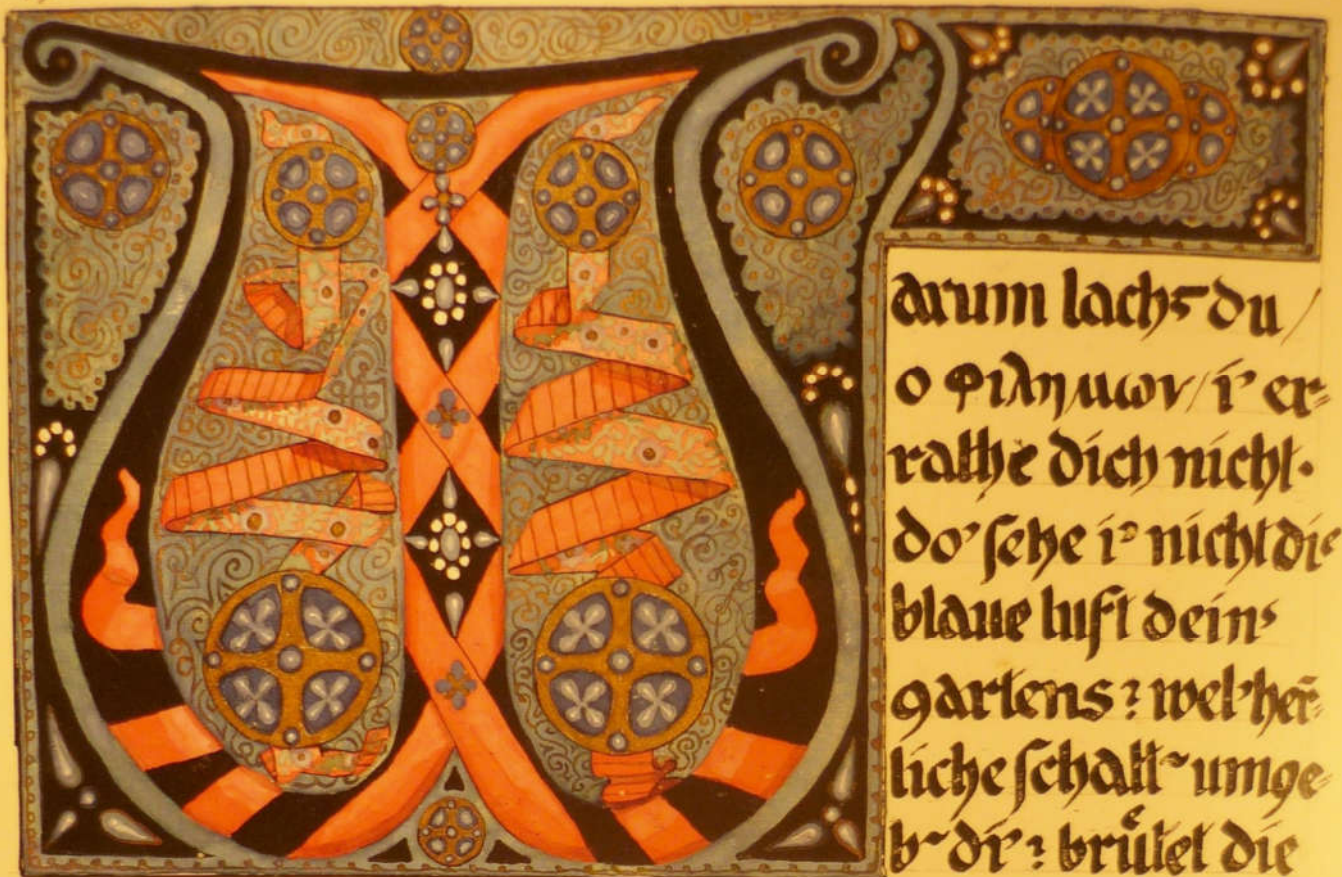 Warum lachs du /
o φιλημων / i' er=
rathe dich nicht.
do' sehe i' nicht die
blaue luft deins
gartens? wel' her=
liche schatt~ umge=
b~ dir? brütet die